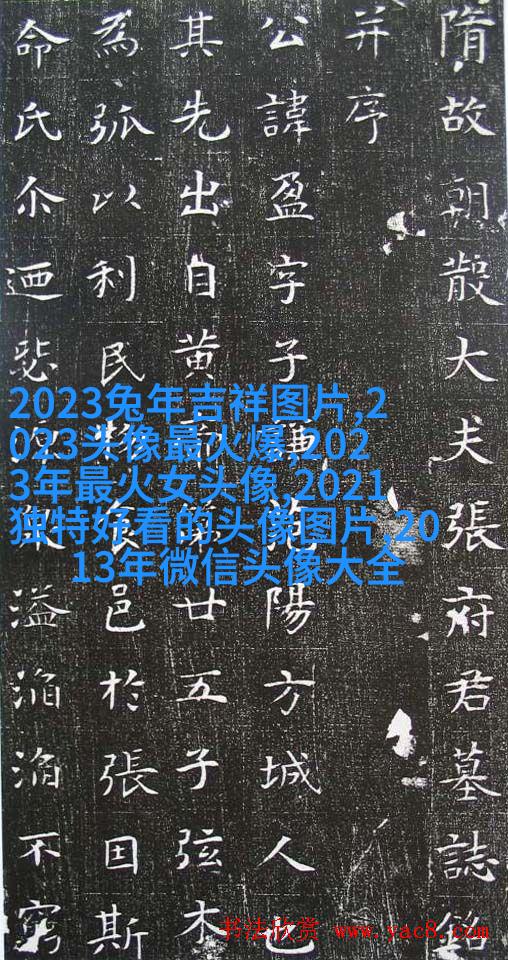 隋故朝散大夫張府君墓誌銘
并序
公諱盈字子謙范陽方城人也
其先出自黄帝第廿五子弦木
為弧以利民食邑於張因斯
命氏尒迺源溢滔滔不窮
2023兔年吉祥图片,2
023头像最火爆,202
3年最火女头像,2021
独特好看的头像图片,20
13年微信头像大全
书法欣赏 www.yac8.com